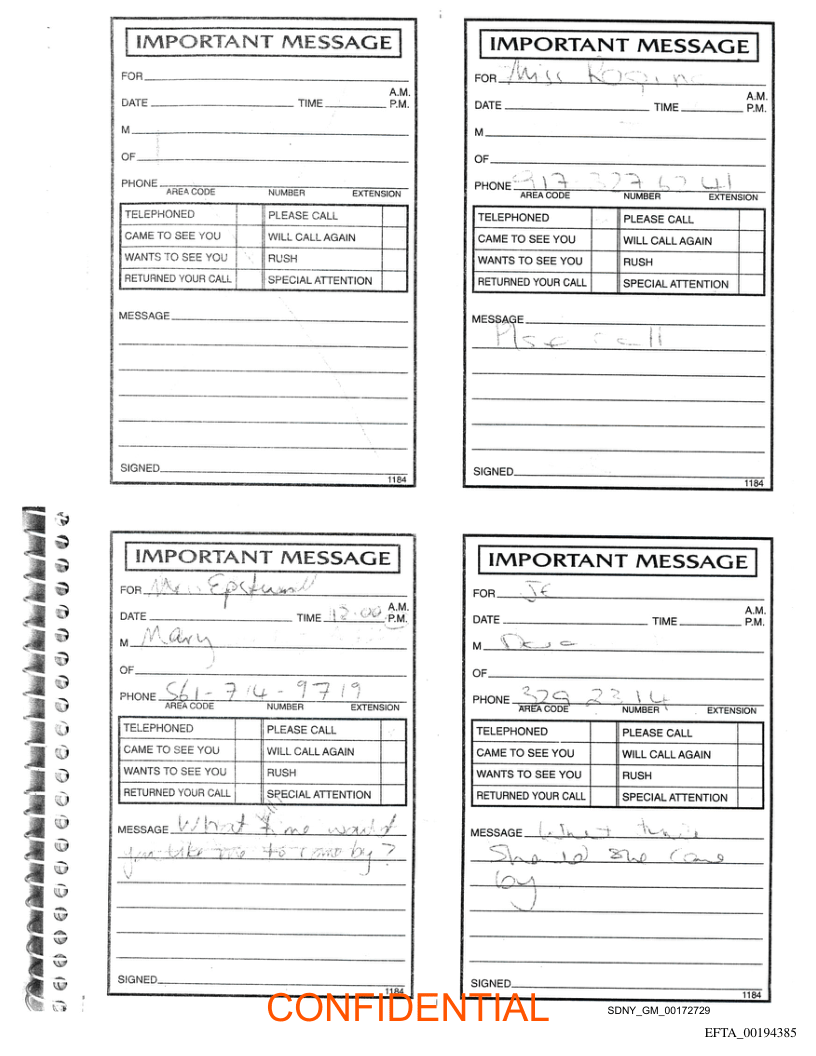 IMPORTANT MESSAGE
FOR
A.M.
DATE TIME P.M.
M
OF
PHONE
AREA CODE NUMBER EXTENSION
TELEPHONED PLEASE CALL
CAME TO SEE YOU WILL CALL AGAIN
WANTS TO SEE YOU RUSH
RETURNED YOUR CALL SPECIAL ATTENTION
MESSAGE
SIGNED
1184
IMPORTANT MESSAGE
FOR Miss
A.M.
DATE TIME P.M.
M
OF
PHONE 917
AREA CODE NUMBER EXTENSION
TELEPHONED PLEASE CALL
CAME TO SEE YOU WILL CALL AGAIN
WANTS TO SEE YOU RUSH
RETURNED YOUR CALL SPECIAL ATTENTION
MESSAGE
Plse call
SIGNED
1184
IMPORTANT MESSAGE
FOR
A.M.
DATE TIME 12:00 P.M.
M Mary
OF
PHONE 561-714-9719
AREA CODE NUMBER EXTENSION
TELEPHONED PLEASE CALL
CAME TO SEE YOU WILL CALL AGAIN
WANTS TO SEE YOU RUSH
RETURNED YOUR CALL SPECIAL ATTENTION
MESSAGE What time would
you like me to come by?
SIGNED
1184
IMPORTANT MESSAGE
FOR JE
A.M.
DATE TIME P.M.
M
OF
PHONE 329 2314
AREA CODE NUMBER EXTENSION
TELEPHONED PLEASE CALL
CAME TO SEE YOU WILL CALL AGAIN
WANTS TO SEE YOU RUSH
RETURNED YOUR CALL SPECIAL ATTENTION
MESSAGE What
she come
by
SIGNED
1184
CONFIDENTIAL
SDNY_GM_00172729
EFTA_00194385